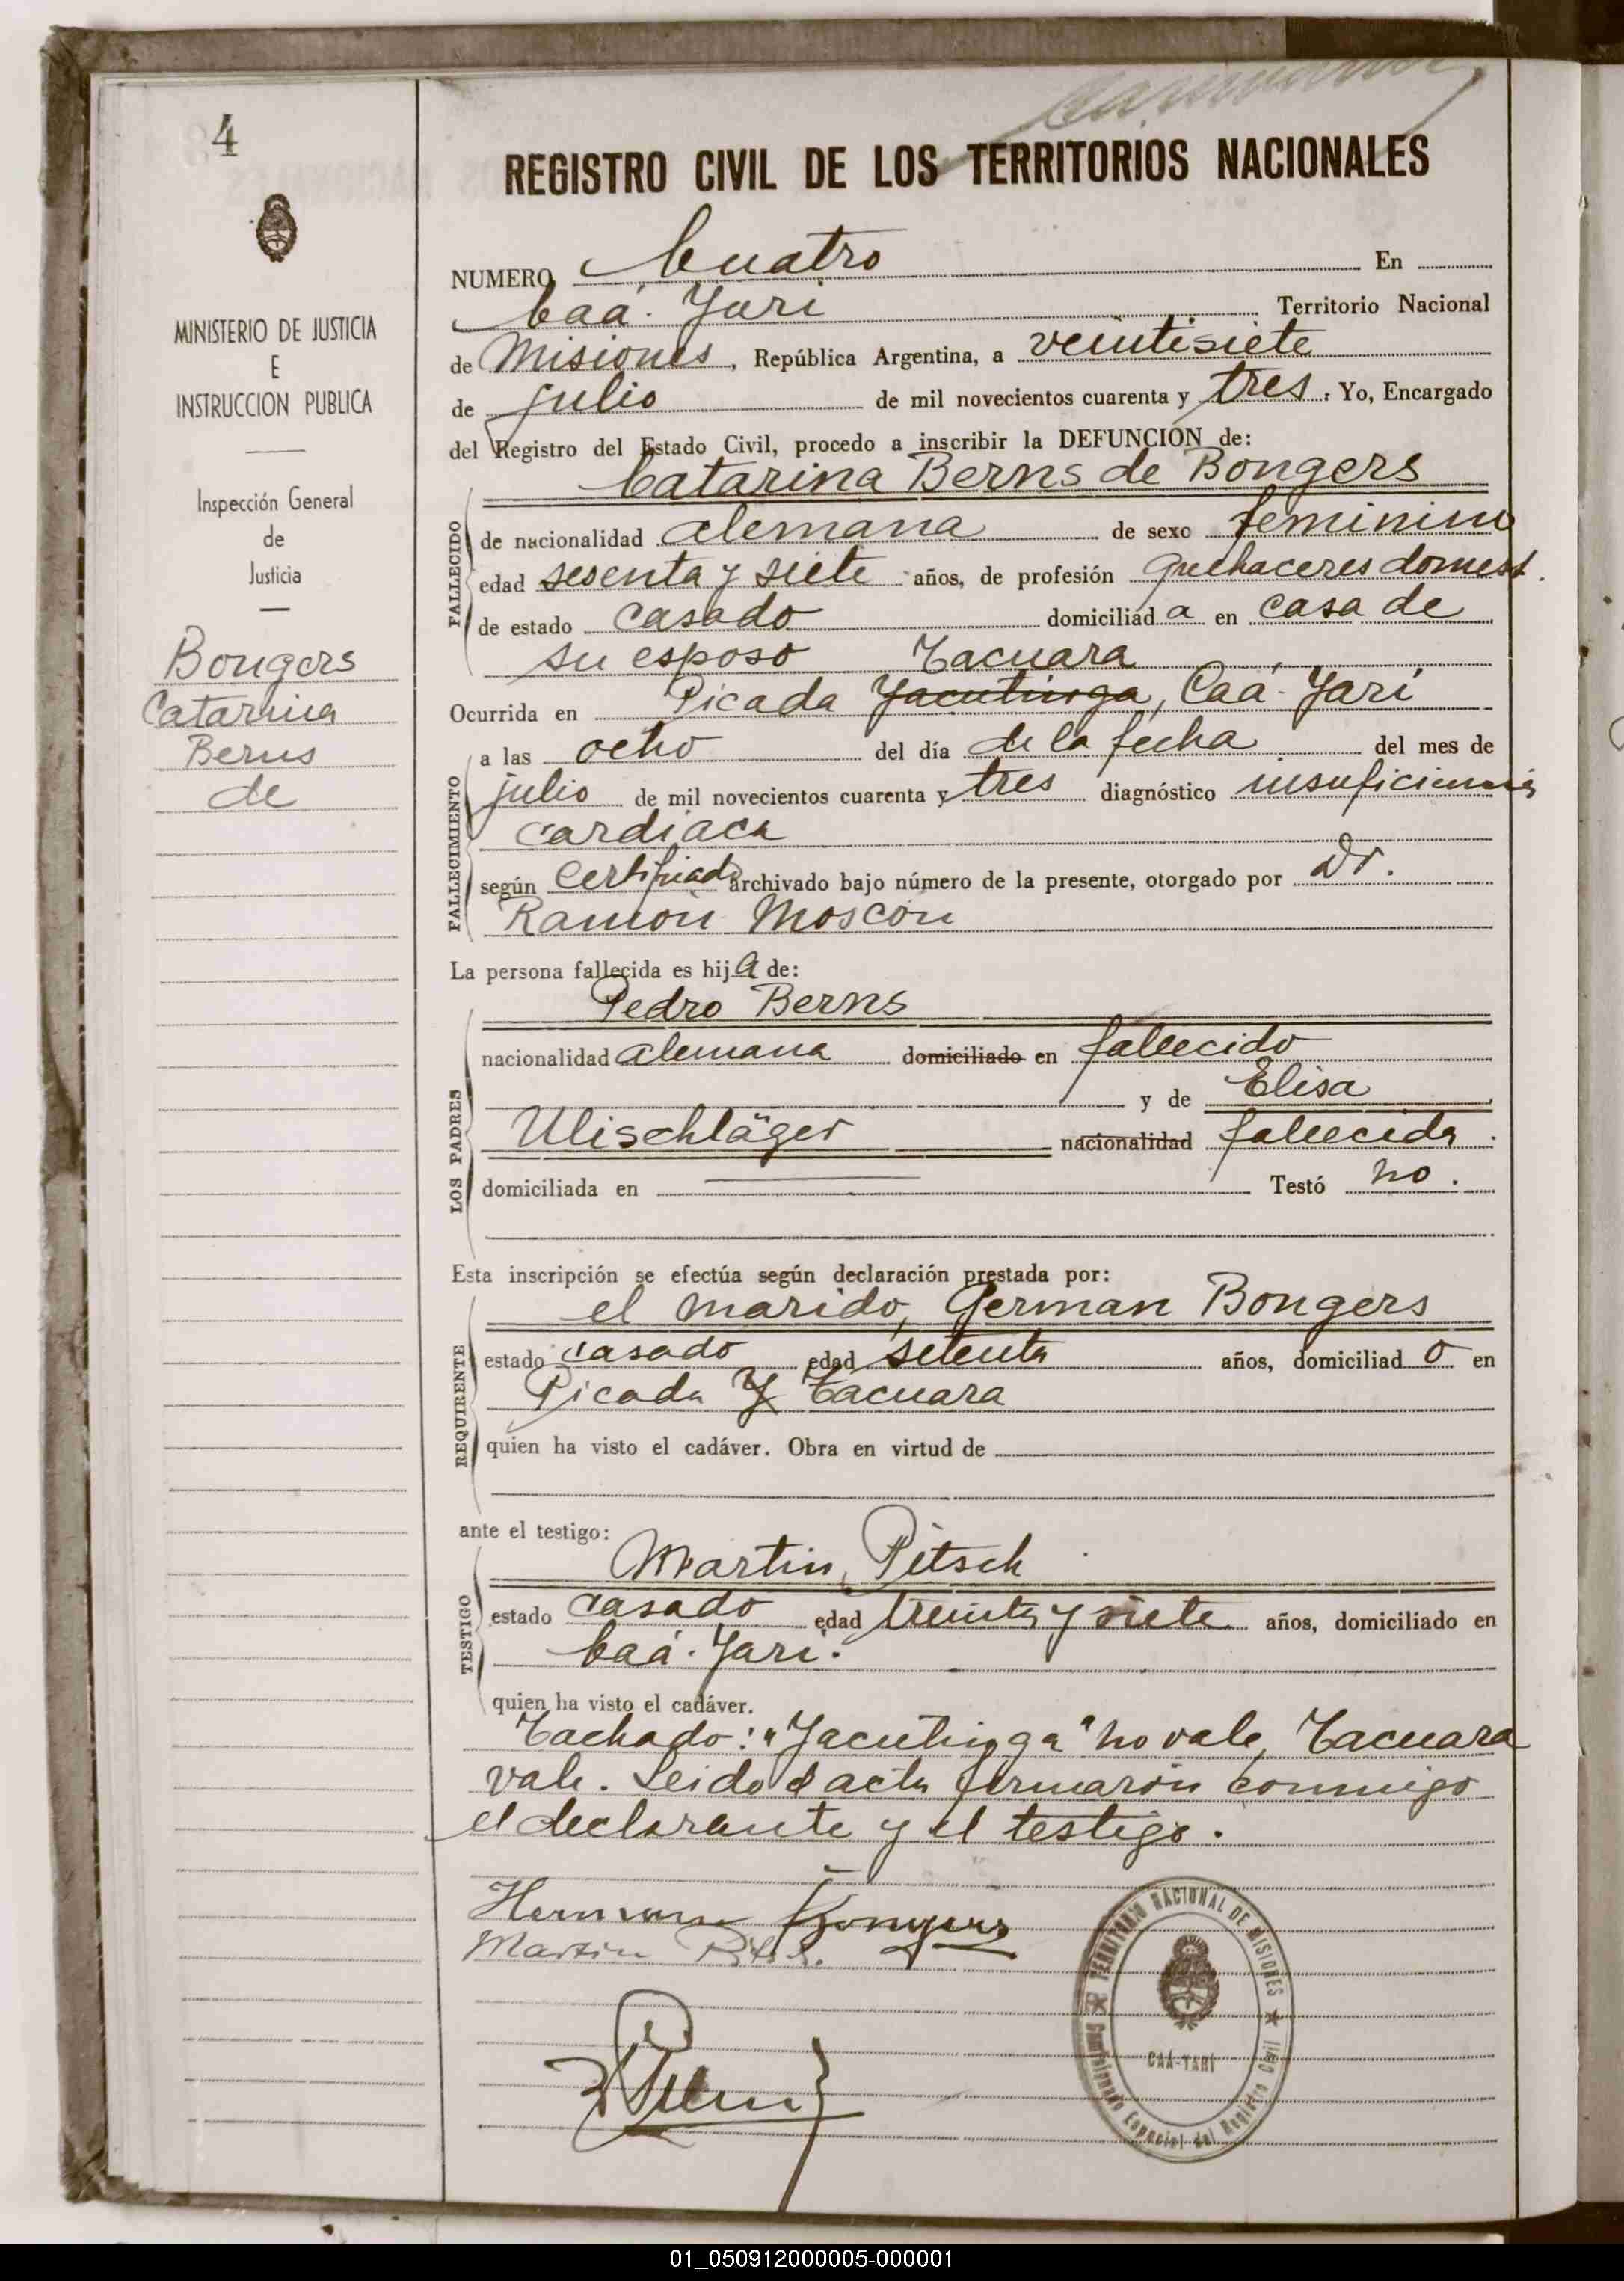 4
MINISTERIO DE JUSTICIA
E
INSTRUCCION PUBLICA
Inspección General
de
Justicia
Bongers
Catarina
Berns
de
REGISTRO CIVIL DE LOS TERRITORIOS NACIONALES
NUMERO Cuatro En
Caá-Yari Territorio Nacional
de Misiones, República Argentina, a veintisiete
de julio de mil novecientos cuarenta y tres. Yo, Encargado
del Registro del Estado Civil, procedo a inscribir la DEFUNCION de:
Catarina Berns de Bongers
FALLECIDO
de nacionalidad alemana de sexo feminino
edad sesenta y siete años, de profesión quehaceres domest.
de estado casado domiciliad a en casa de
su esposo Tacuara
Ocurrida en Picada Yacutinga, Caá-Yarí
a las ocho del día de la fecha del mes de
FALLECIMIENTO
julio de mil novecientos cuarenta y tres diagnóstico insuficiencia
cardiaca
según certificado archivado bajo número de la presente, otorgado por Dr.
Ramón Moscón
La persona fallecida es hija de:
Pedro Berns
LOS PADRES
nacionalidad alemana domiciliado en fallecido
y de Elisa
Ulischläger nacionalidad fallecida.
domiciliada en Testó no.
Esta inscripción se efectúa según declaración prestada por:
el marido, German Bongers
REQUIRENTE
estado casado edad setenta años, domiciliad o en
Picada Y Tacuara
quien ha visto el cadáver. Obra en virtud de
ante el testigo:
Martin Pitsch
TESTIGO
estado casado edad treinta y siete años, domiciliado en
Caá-Yari.
quien ha visto el cadáver.
Tachado: "Yacutinga" no vale, Tacuara
vale. Leido el acta firmarón conmigo
el declarante y el testigo.
Hermann Bongers
Martin
TERRITORIO NACIONAL DE MISIONES
CAÁ-YARÍ
Comisionado Especial del Registro Civil
01_050912000005-000001